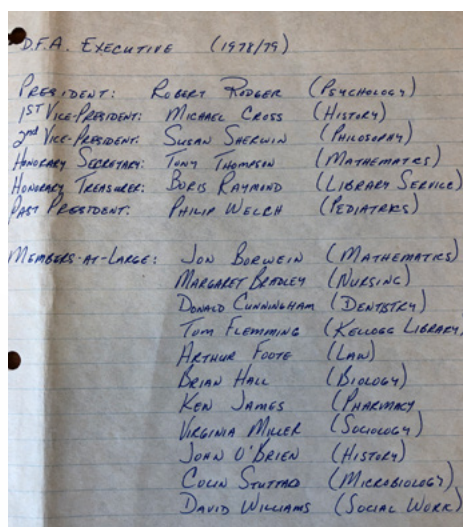 D.F.A. EXECUTIVE (1978/79)
PRESIDENT: ROBERT RODGER (PSYCHOLOGY)
1ST VICE-PRESIDENT: MICHAEL CROSS (HISTORY)
2nd VICE-PRESIDENT: SUSAN SHERWIN (PHILOSOPHY)
HONORARY SECRETARY: TONY THOMPSON (MATHEMATICS)
HONORARY TREASURER: BORIS RAYMOND (LIBRARY SERVICE)
PAST PRESIDENT: PHILIP WELCH (PEDIATRICS)
MEMBERS-AT-LARGE: JON BORWEIN (MATHEMATICS)
MARGARET BRADLEY (NURSING)
DONALD CUNNINGHAM (DENTISTRY)
TOM FLEMMING (KELLOGG LIBRARY)
ARTHUR FOOTE (LAW)
BRIAN HALL (BIOLOGY)
KEN JAMES (PHARMACY
VIRGINIA MILLER (SOCIOLOGY)
JOHN O'BRIEN (HISTORY)
COLIN STUTTARD (MICROBIOLOGY)
DAVID WILLIAMS (SOCIAL WORK)